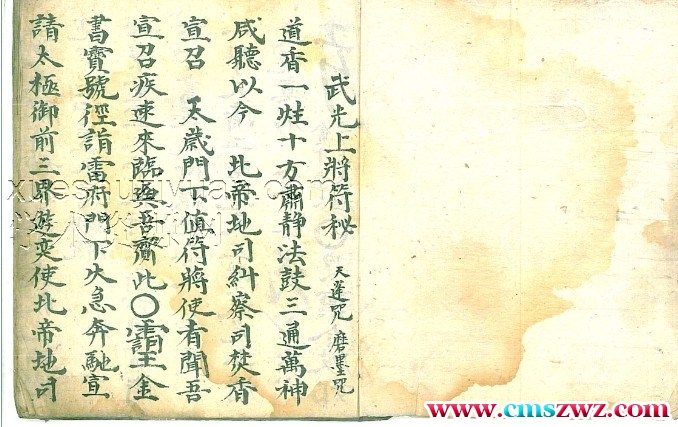 武光上將符秘 天蓬咒 磨墨咒
道香一炷十方肅静法鼓三通萬神
咸聽以今 北帝地司糾察司焚香
宣召 太歲門下值符將使者聞吾
宣召疾速來臨與吾齎此〇金
書寶號徑詣雷府門下火急奔馳宣
請太極御前三界遊奕使北帝地司
www.cmszwz.com